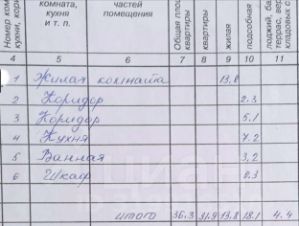 Номер ком
кухни, кор
комната,
кухня
и т. п.
частей
помещения
Общая пло
квартиры
квартиры
жилая
подсобная
лоджий, ба
террас, вер
кладовых с
4 5 6 7 8 9 10 11
1 Жилая комната 13,8
2 Коридор 2.3
3 Коридор 5.1
4 Кухня 7.2
5 Ванная 3,2
6 Шкаф 0.3
итого 36.3 31.9 13.8 18.1 4.4